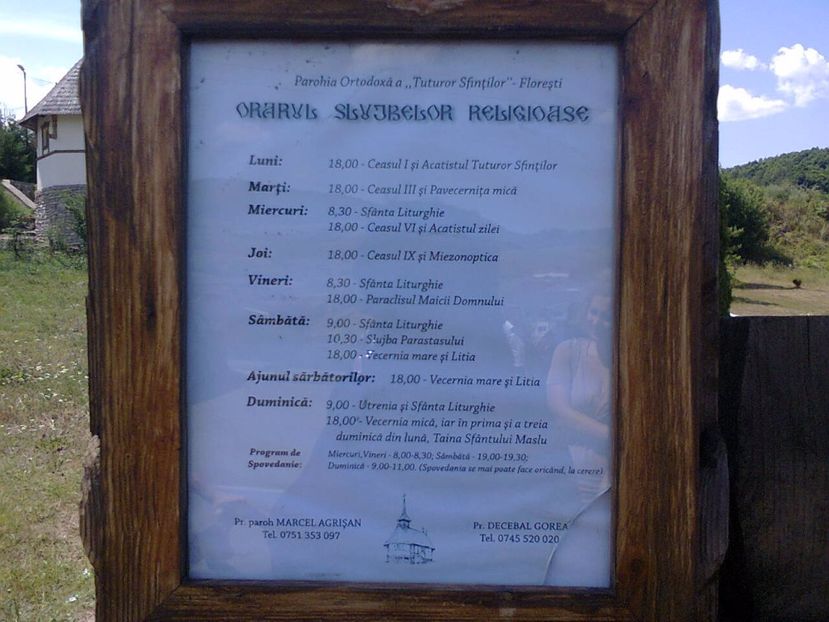 Parohia Ortodoxă a ,,Tuturor Sfinților"- Florești
ORARUL SLUJBELOR RELIGIOASE
Luni: 18,00 - Ceasul I și Acatistul Tuturor Sfinților
Marți: 18,00 - Ceasul III și Pavecernița mică
Miercuri: 8,30 - Sfânta Liturghie
18,00 - Ceasul VI și Acatistul zilei
Joi: 18,00 - Ceasul IX și Miezonoptica
Vineri: 8,30 - Sfânta Liturghie
18,00 - Paraclisul Maicii Domnului
Sâmbătă: 9,00 - Sfânta Liturghie
10,30 - Slujba Parastasului
18,00 - Vecernia mare și Litia
Ajunul sărbătorilor: 18,00 - Vecernia mare și Litia
Duminică: 9,00 - Utrenia și Sfânta Liturghie
18,00 - Vecernia mică, iar în prima și a treia
duminică din lună, Taina Sfântului Maslu
Program de Miercuri,Vineri - 8,00-8,30; Sâmbătă - 19,00-19,30;
Spovedanie: Duminică - 9,00-11,00. (Spovedania se mai poate face oricând, la cerere)
Pr. paroh MARCEL AGRIȘAN
Tel. 0751 353 097
Pr. DECEBAL GOREA
Tel. 0745 520 020